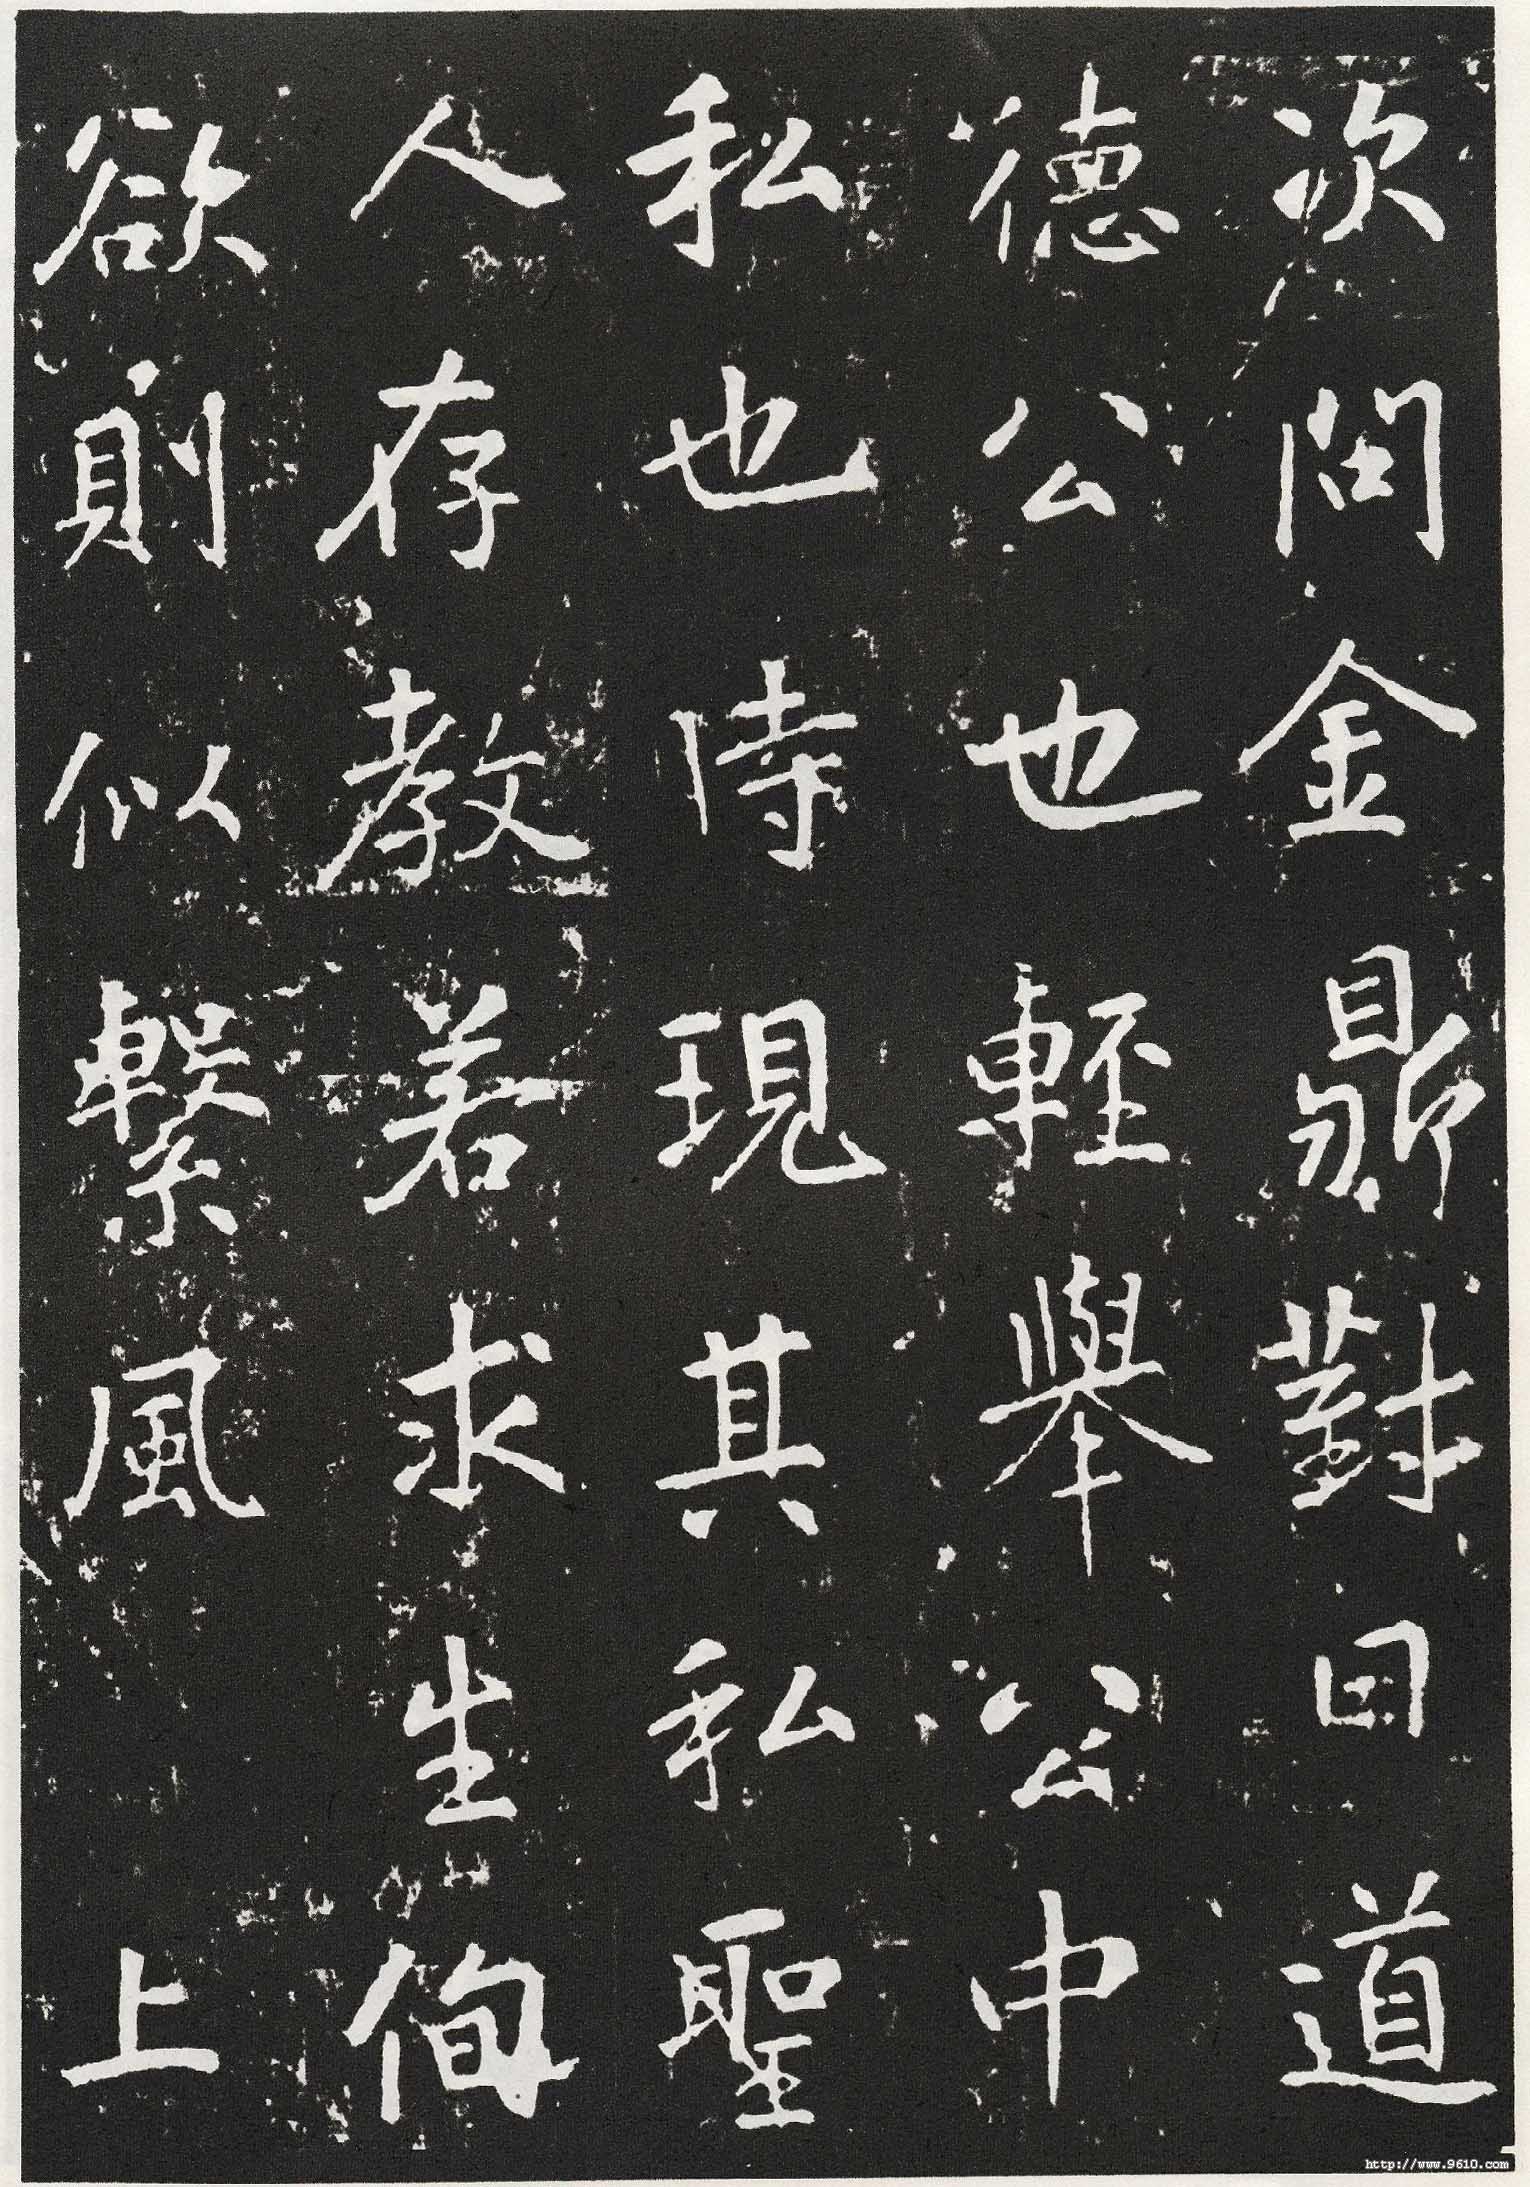 次問金鼎對曰道
德公也輕舉公中
私也時現其私聖
人存教若求生徇
欲則似繫風 上
http://www.9610.com